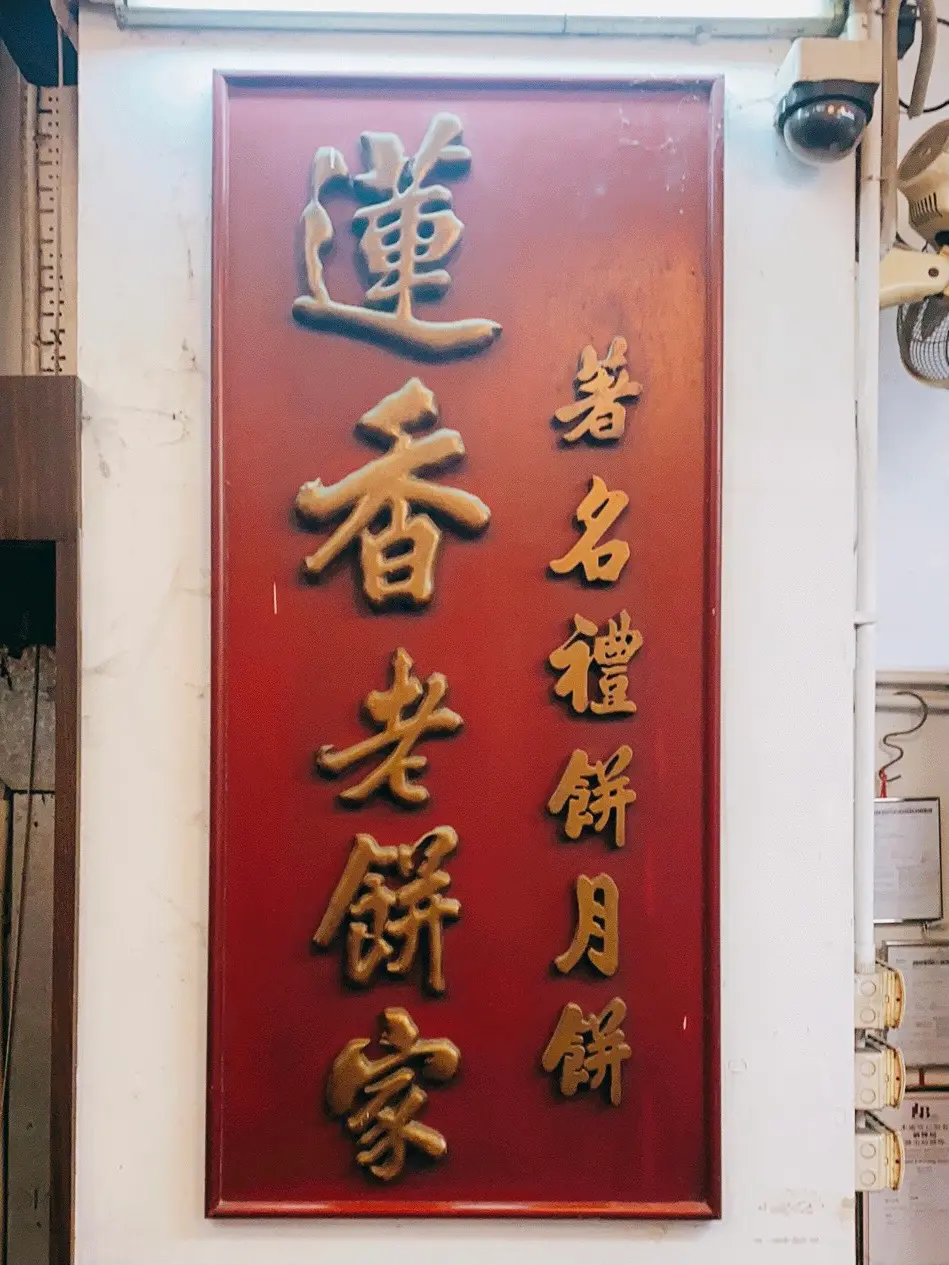 著名禮餅月餅
蓮香老餅家